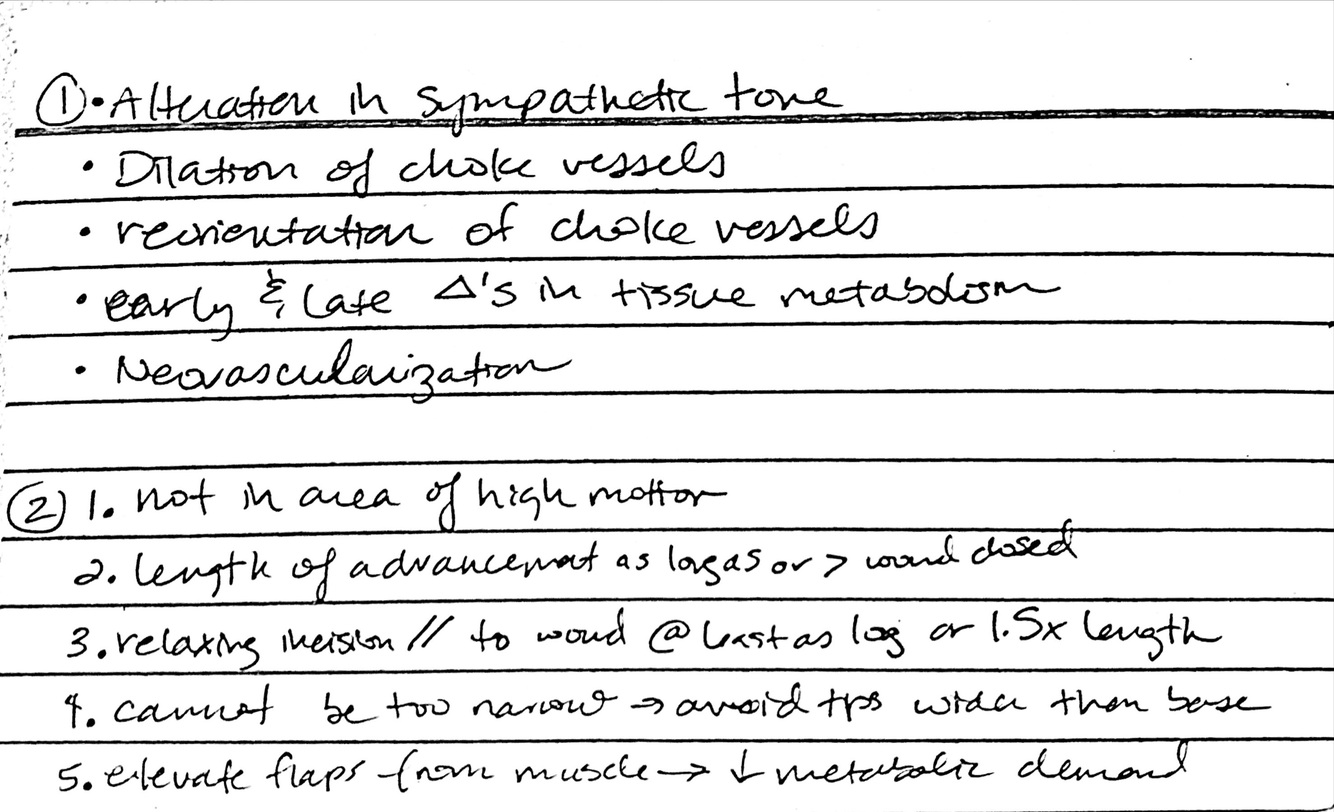 ① • Alteration in sympathetic tone
• Dilation of choke vessels
• reorientation of choke vessels
• early & late Δ's in tissue metabolism
• Neovascularization
② 1. not in area of high motion
2. length of advancement as long as or > wound closed
3. relaxing incision // to wound @ least as long or 1.5x length
4. cannot be too narrow → avoid tips wider than base
5. elevate flaps from muscle → ↓ metabolic demand